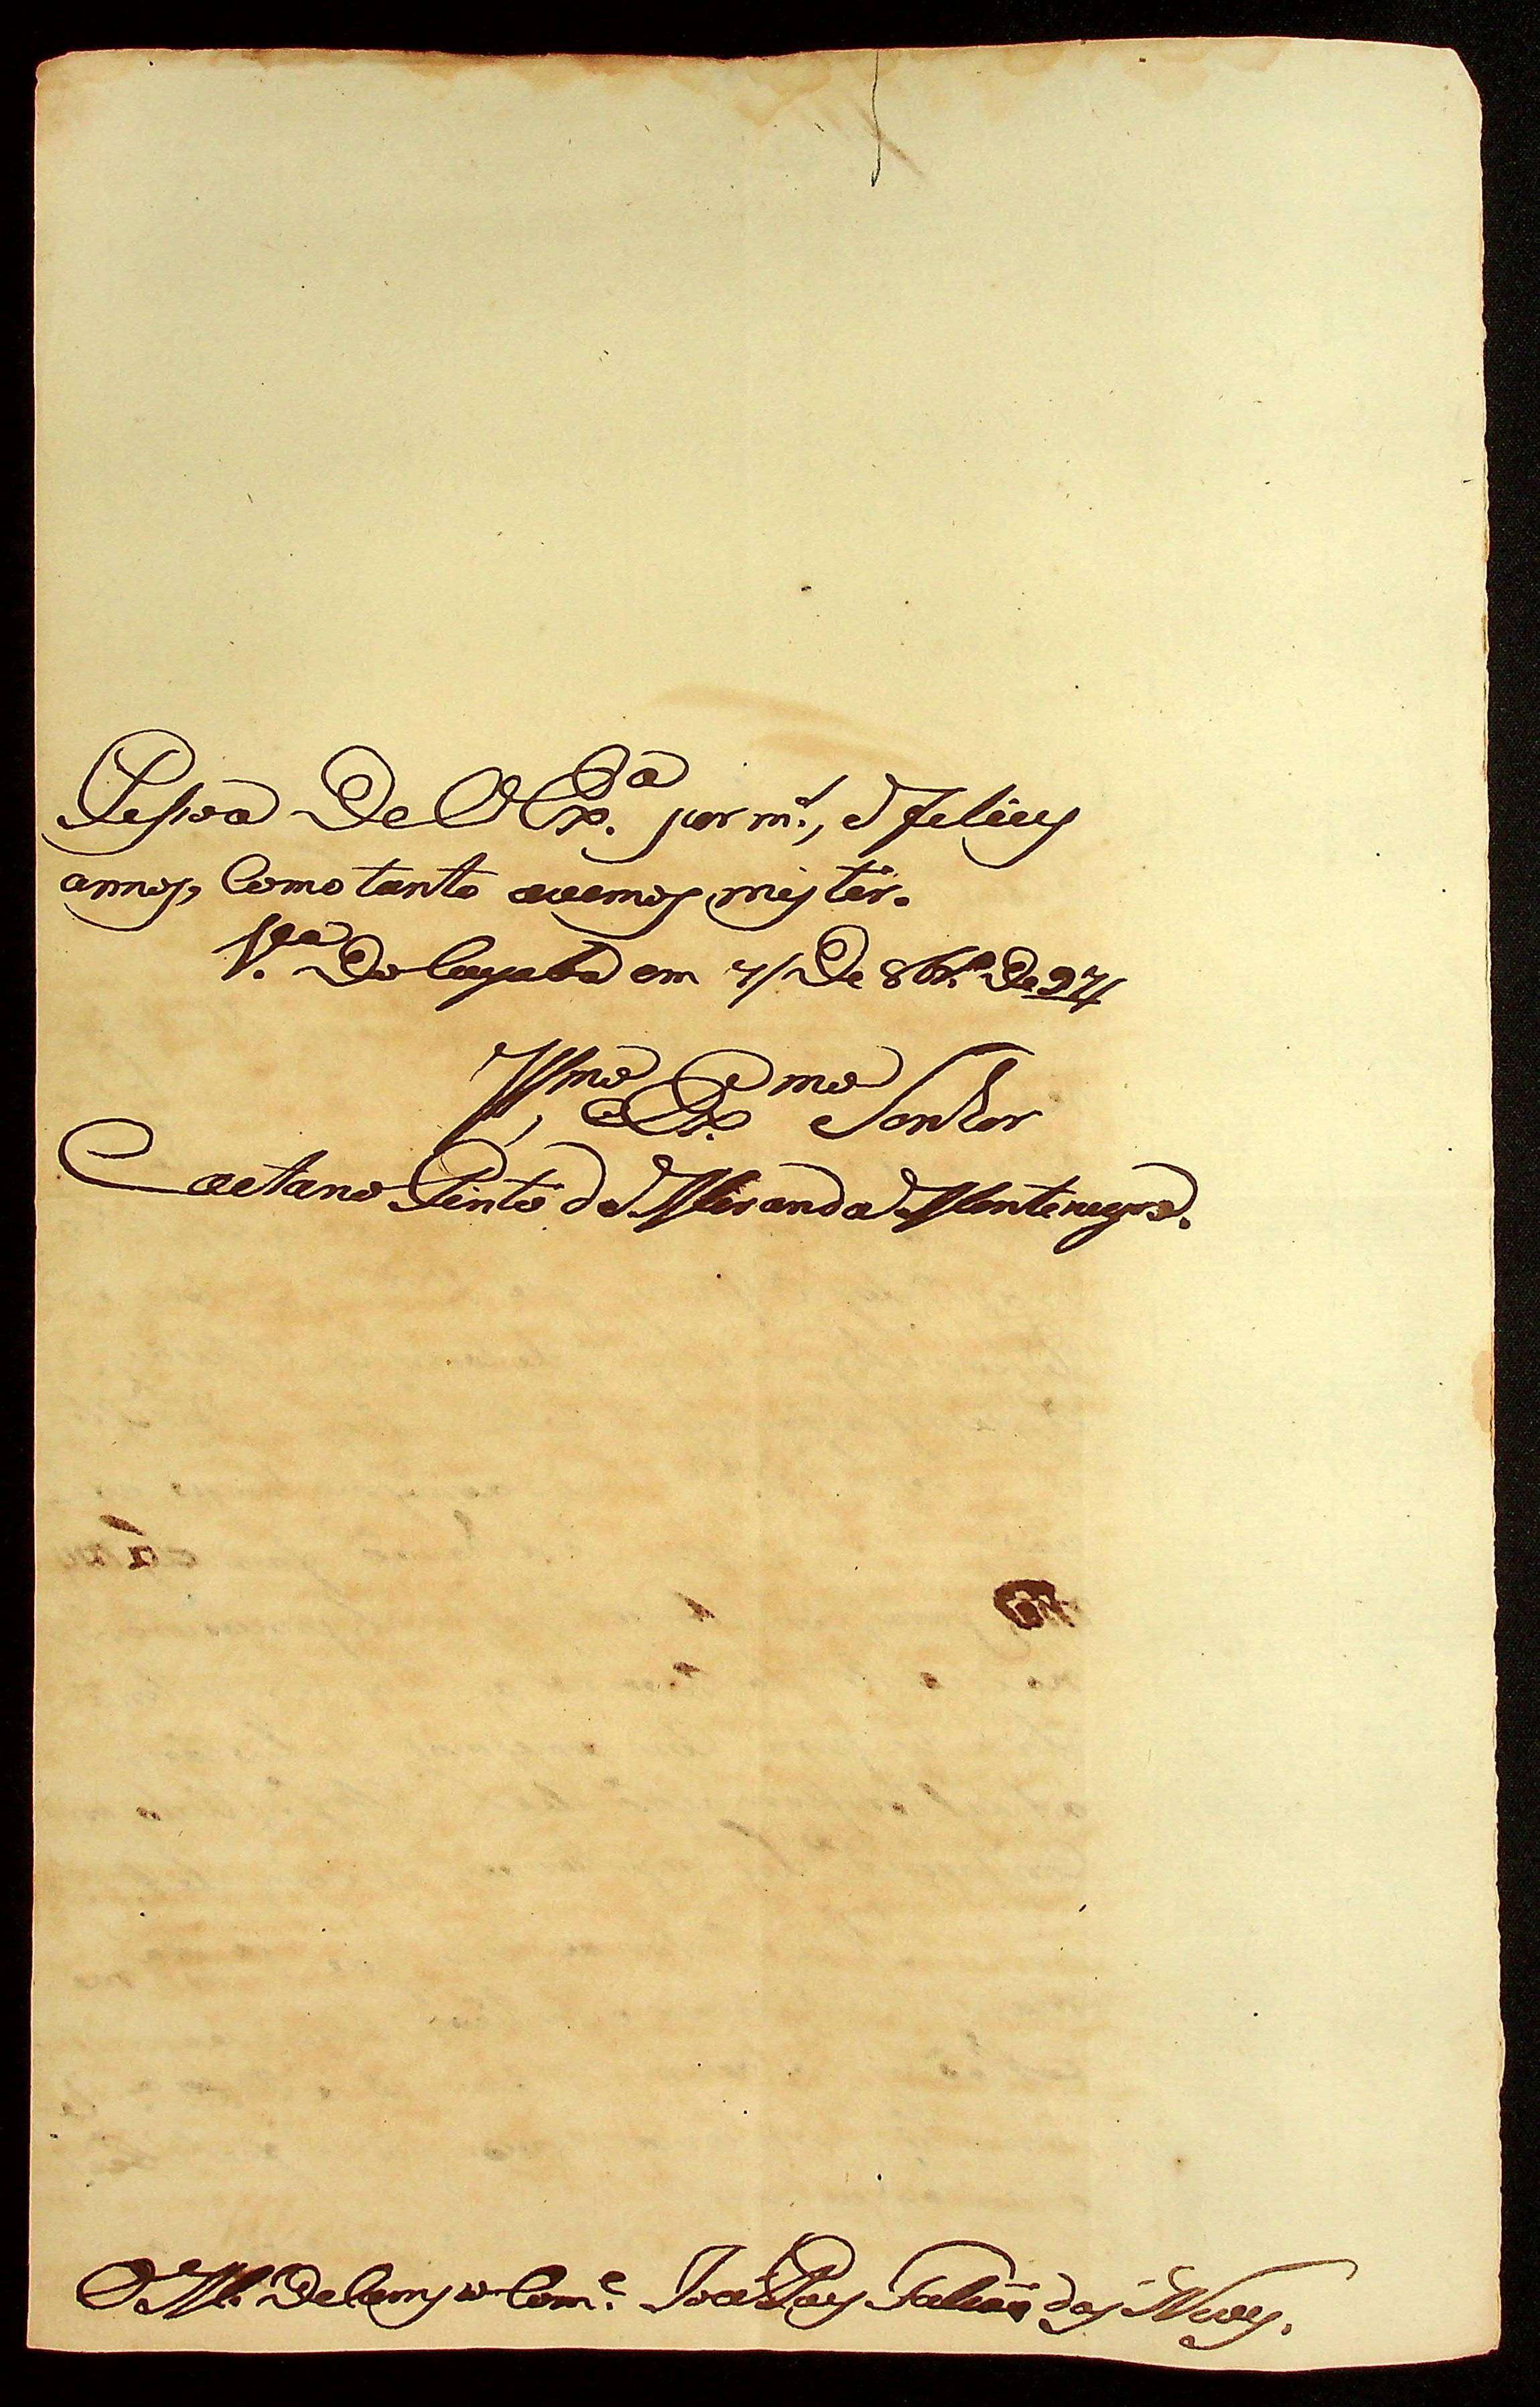 Pessoa De V Exª. por m.ˢ, e felices
annos, Como tanto avemos mister.
V.ª Do Cuyabá em 7/ De 8br.º De 97//
Illmo, e Exmo Senhor
Caetano Pinto de Miranda Montenegro.
O M. De Campo Com.e José Paes Falcaõ das Neves.